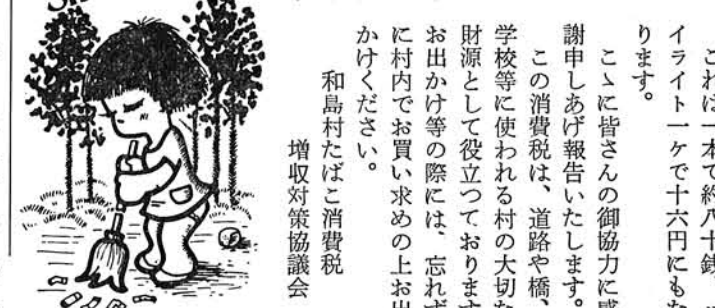 これは一本で約八十銭
イライト一ケで十六円にもな
ります。
こゝに皆さんの御協力に感
謝申しあげ報告いたします。
この消費税は、道路や橋
学校等に使われる村の大切な
財源として役立つております
お出かけ等の際には、忘れず
に村内でお買い求めの上お出
かけください。
和島村たばこ消費税
増収対策協議会